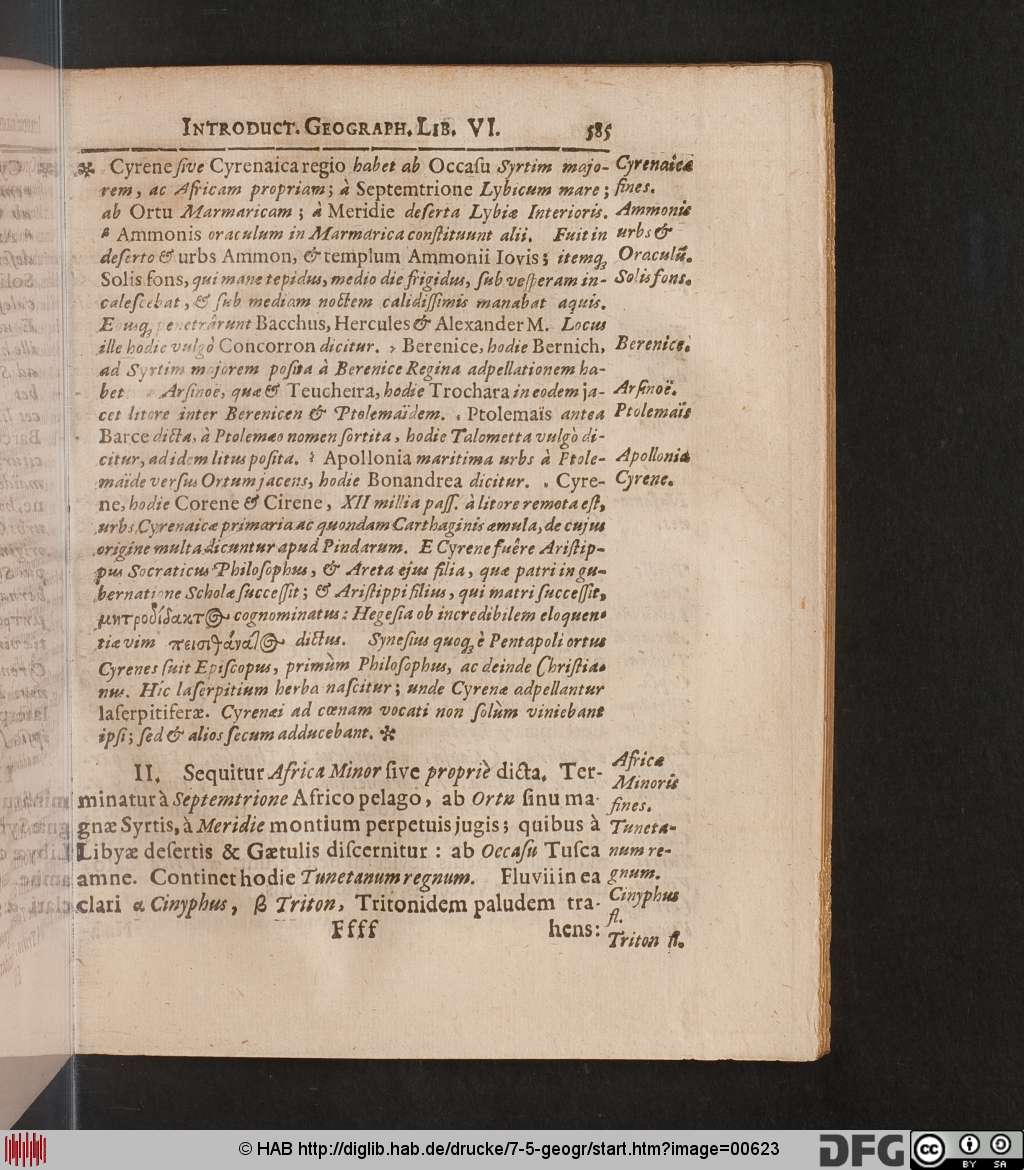 INTRODUCT. GEOGRAPH. LIB. VI. 585
* Cyrene ſive Cyrenaica regio habet ab Occaſu Syrtim majo-
rem, ac Africam propriam; à Septemtrione Lybicum mare;
ab Ortu Marmaricam; à Meridie deſerta Lybiæ Interioris.
Ammonis oraculum in Marmarica conſtituunt alii. Fuit in
deſerto & urbs Ammon, & templum Ammonii Iovis; itemq́;
Solis fons, qui mane tepidus, medio die frigidus, ſub veſperam in-
caleſcebat, & ſub mediam noctem calidiſſimis manabat aquis.
penetrârunt Bacchus, Hercules & Alexander M. Locus
ille hodie vulgò Concorron dicitur. Berenice, hodie Bernich,
ad Syrtim majorem poſita à Berenice Regina adpellationem ha-
bet Arſinoë, quæ & Teucheira, hodie Trochara in eodem ja-
cet litore inter Berenicen & Ptolemaïdem. Ptolemaïs antea
Barce dicta, à Ptolemæo nomen ſortita, hodie Talometta vulgò di-
citur, ad idem litus poſita. Apollonia maritima urbs à Ptole-
maïde verſus Ortum jacens, hodie Bonandrea dicitur. Cyre-
ne, hodie Corene & Cirene, XII millia paſſ. à litore remota eſt,
urbs Cyrenaicæ primaria ac quondam Carthaginis æmula, de cujus
origine multa dicuntur apud Pindarum. E Cyrene fuêre Ariſtip-
pus Socraticus Philoſophus, & Areta ejus filia, quæ patri in gu-
bernatione Scholæ ſucceſſit; & Ariſtippi filius, qui matri ſucceſſit,
μητροδίδακτος cognominatus: Hegeſia ob incredibilem eloquen-
tiæ vim πεισιθάνατος dictus. Syneſius quoq; è Pentapoli ortus
Cyrenes fuit Epiſcopus, primùm Philoſophus, ac deinde Chriſtia-
nus. Hîc laſerpitium herba naſcitur; unde Cyrenæ adpellantur
laſerpitiferæ. Cyrenæi ad cœnam vocati non ſolùm viniebant
ipſi; ſed & alios ſecum adducebant. *
II. Sequitur Africa Minor ſive propriè dicta. Ter-
minatur à Septemtrione Africo pelago, ab Ortu ſinu ma-
gnæ Syrtis, à Meridie montium perpetuis jugis; quibus à
Libyæ deſertis & Gætulis diſcernitur: ab Occaſu Tuſca
amne. Continet hodie Tunetanum regnum. Fluvii in ea
clari α Cinyphus, β Triton, Tritonidem paludem tra-
Ffff hens:
Cyrenaicæ
fines.
Ammonis
urbs &
Oraculũ.
Solis fons.
Berenice.
Arſinoë.
Ptolemaïs
Apollonia
Cyrene.
Africæ
Minoris
fines.
Tuneta-
num re-
gnum.
Cinyphus
fl.
Triton fl.
© HAB http://diglib.hab.de/drucke/7-5-geogr/start.htm?image=00623
DFG
cc BY SA